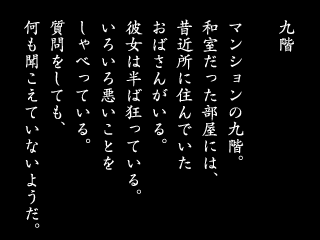 九階
マンションの九階。
和室だった部屋には、
昔近所に住んでいた
おばさんがいる。
彼女は半ば狂っている。
いろいろ悪いことを
しゃべっている。
質問をしても、
何も聞こえていないようだ。